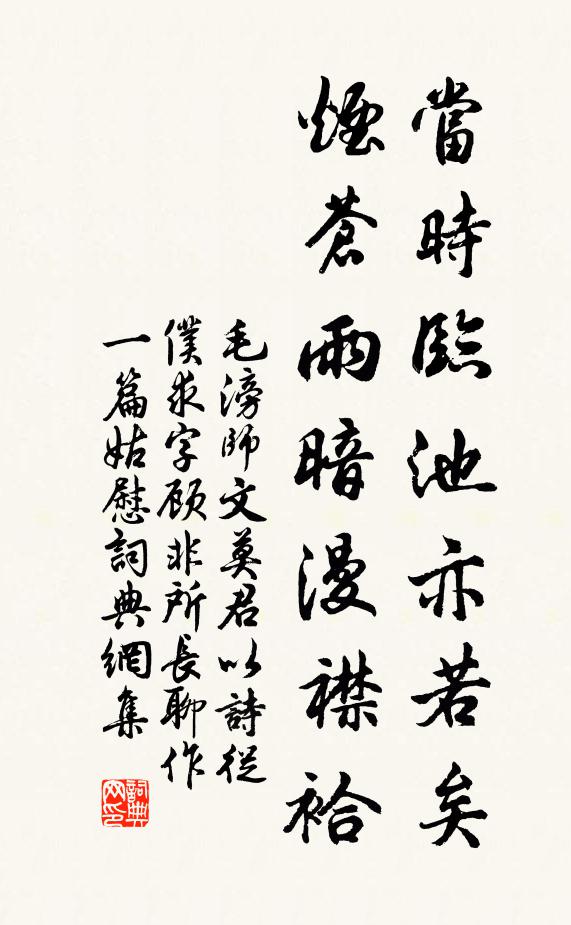 當時臨池亦若矣
煙蒼雨暗漫襟袷
毛滂師文莫君以詩從
僕求字顧非所長聊作
一篇姑慰詞典網集
詞典网印